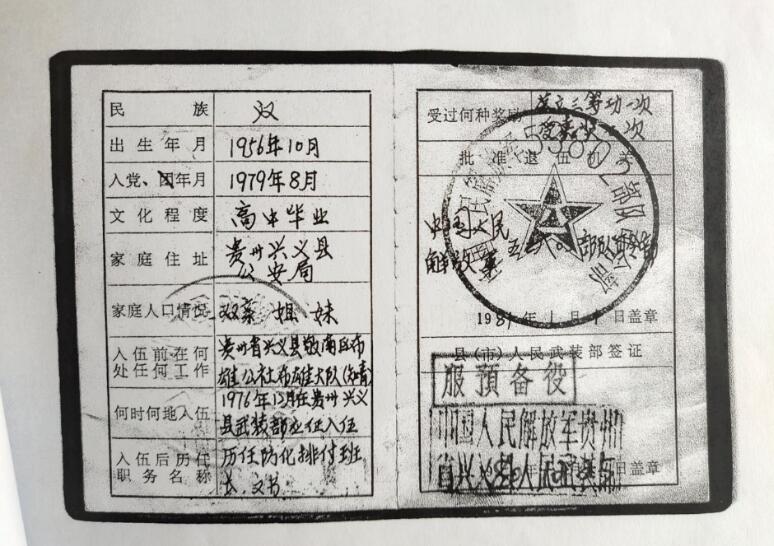 民族 汉
出生年月 1956年10月
入党、团年月 1979年8月
文化程度 高中毕业
家庭住址 贵州兴义县
公安局
家庭人口情况 双亲 姐 妹
入伍前在何
处任何工作
贵州省兴义县敬南区布
雄公社布雄大队(知青)
何时何地入伍
1976年12月在贵州兴义
县武装部应征入伍
入伍后历任
职务名称
历任防化排付班
长、文书
受过何种奖励 三等功一次
受嘉奖 次
批准退伍机关
中国人民
解放军
部队
1981年1月 日盖章
县(市)人民武装部签证
服预备役
中国人民解放军贵州
省兴义县人民武装部
年 月 日盖章